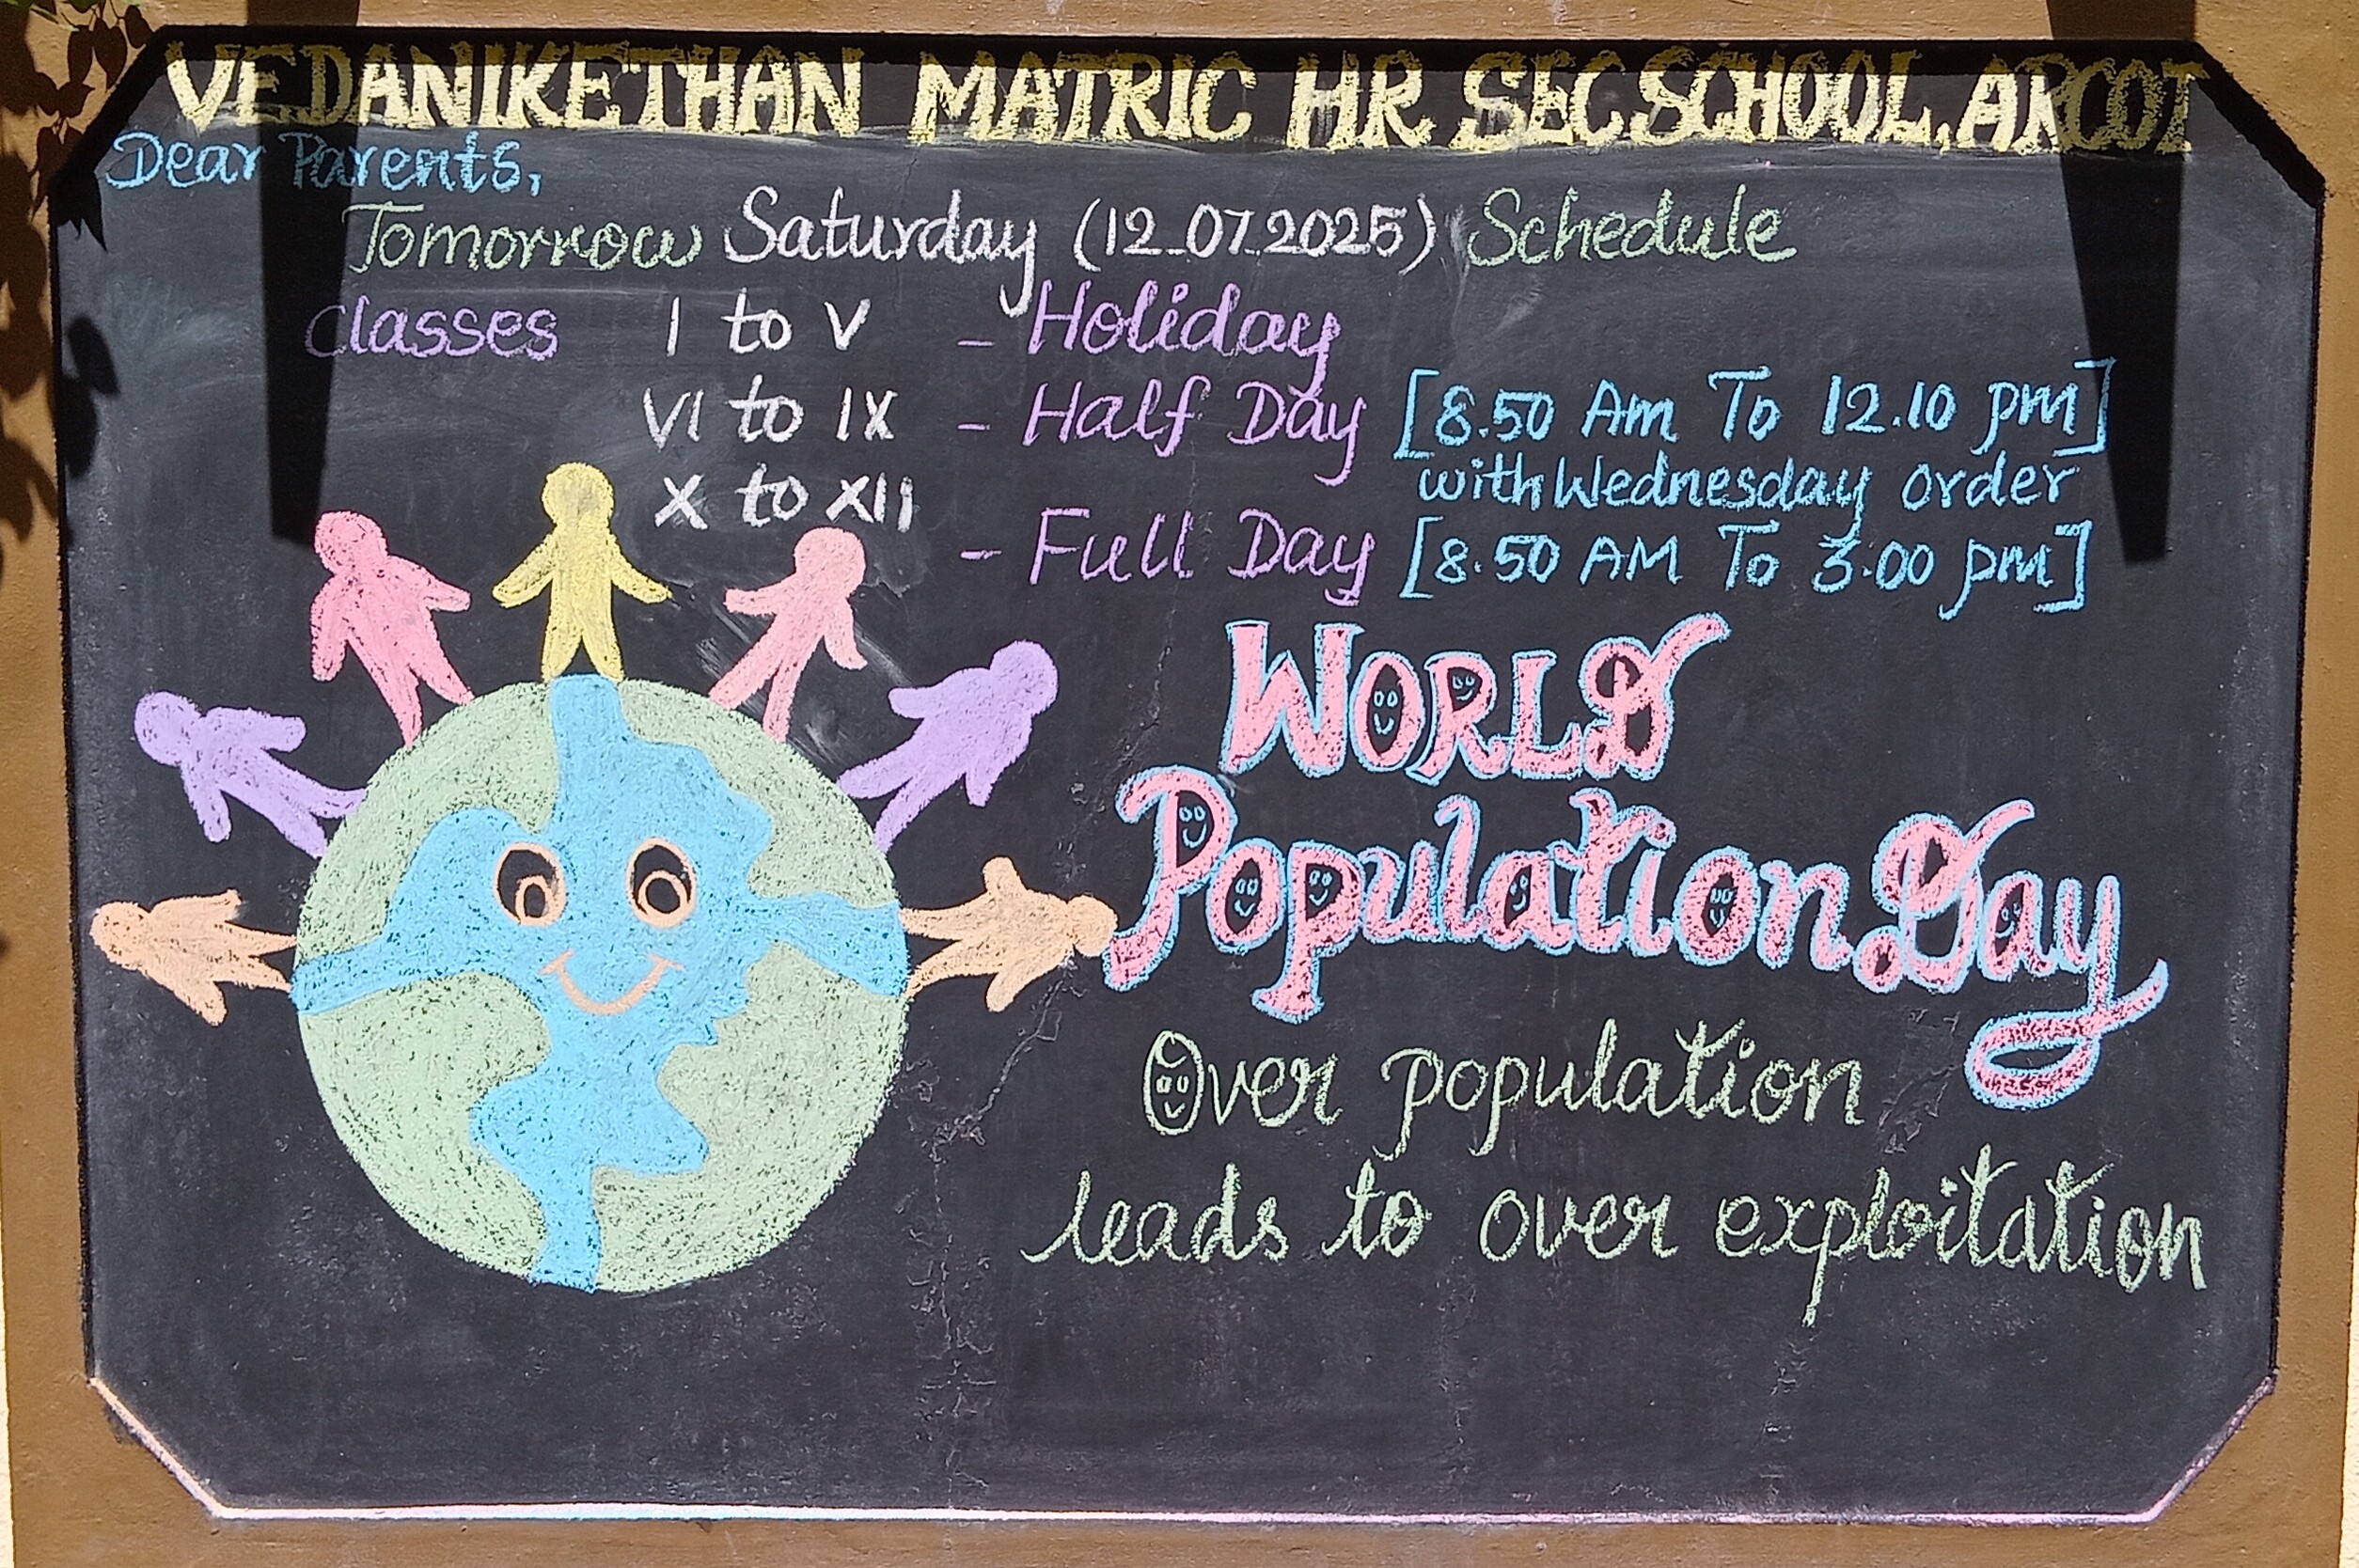 VEDANIKETHAN MATRIC HR SEC SCHOOL, ARCOT
Dear Parents,
Tomorrow Saturday (12.07.2025) Schedule
Classes I to V - Holiday
VI to IX - Half Day [8.50 Am To 12.10 pm]
with Wednesday order
X to XII - Full Day [8.50 AM To 3.00 pm]
WORLD
Population Day
Over population
leads to over exploitation